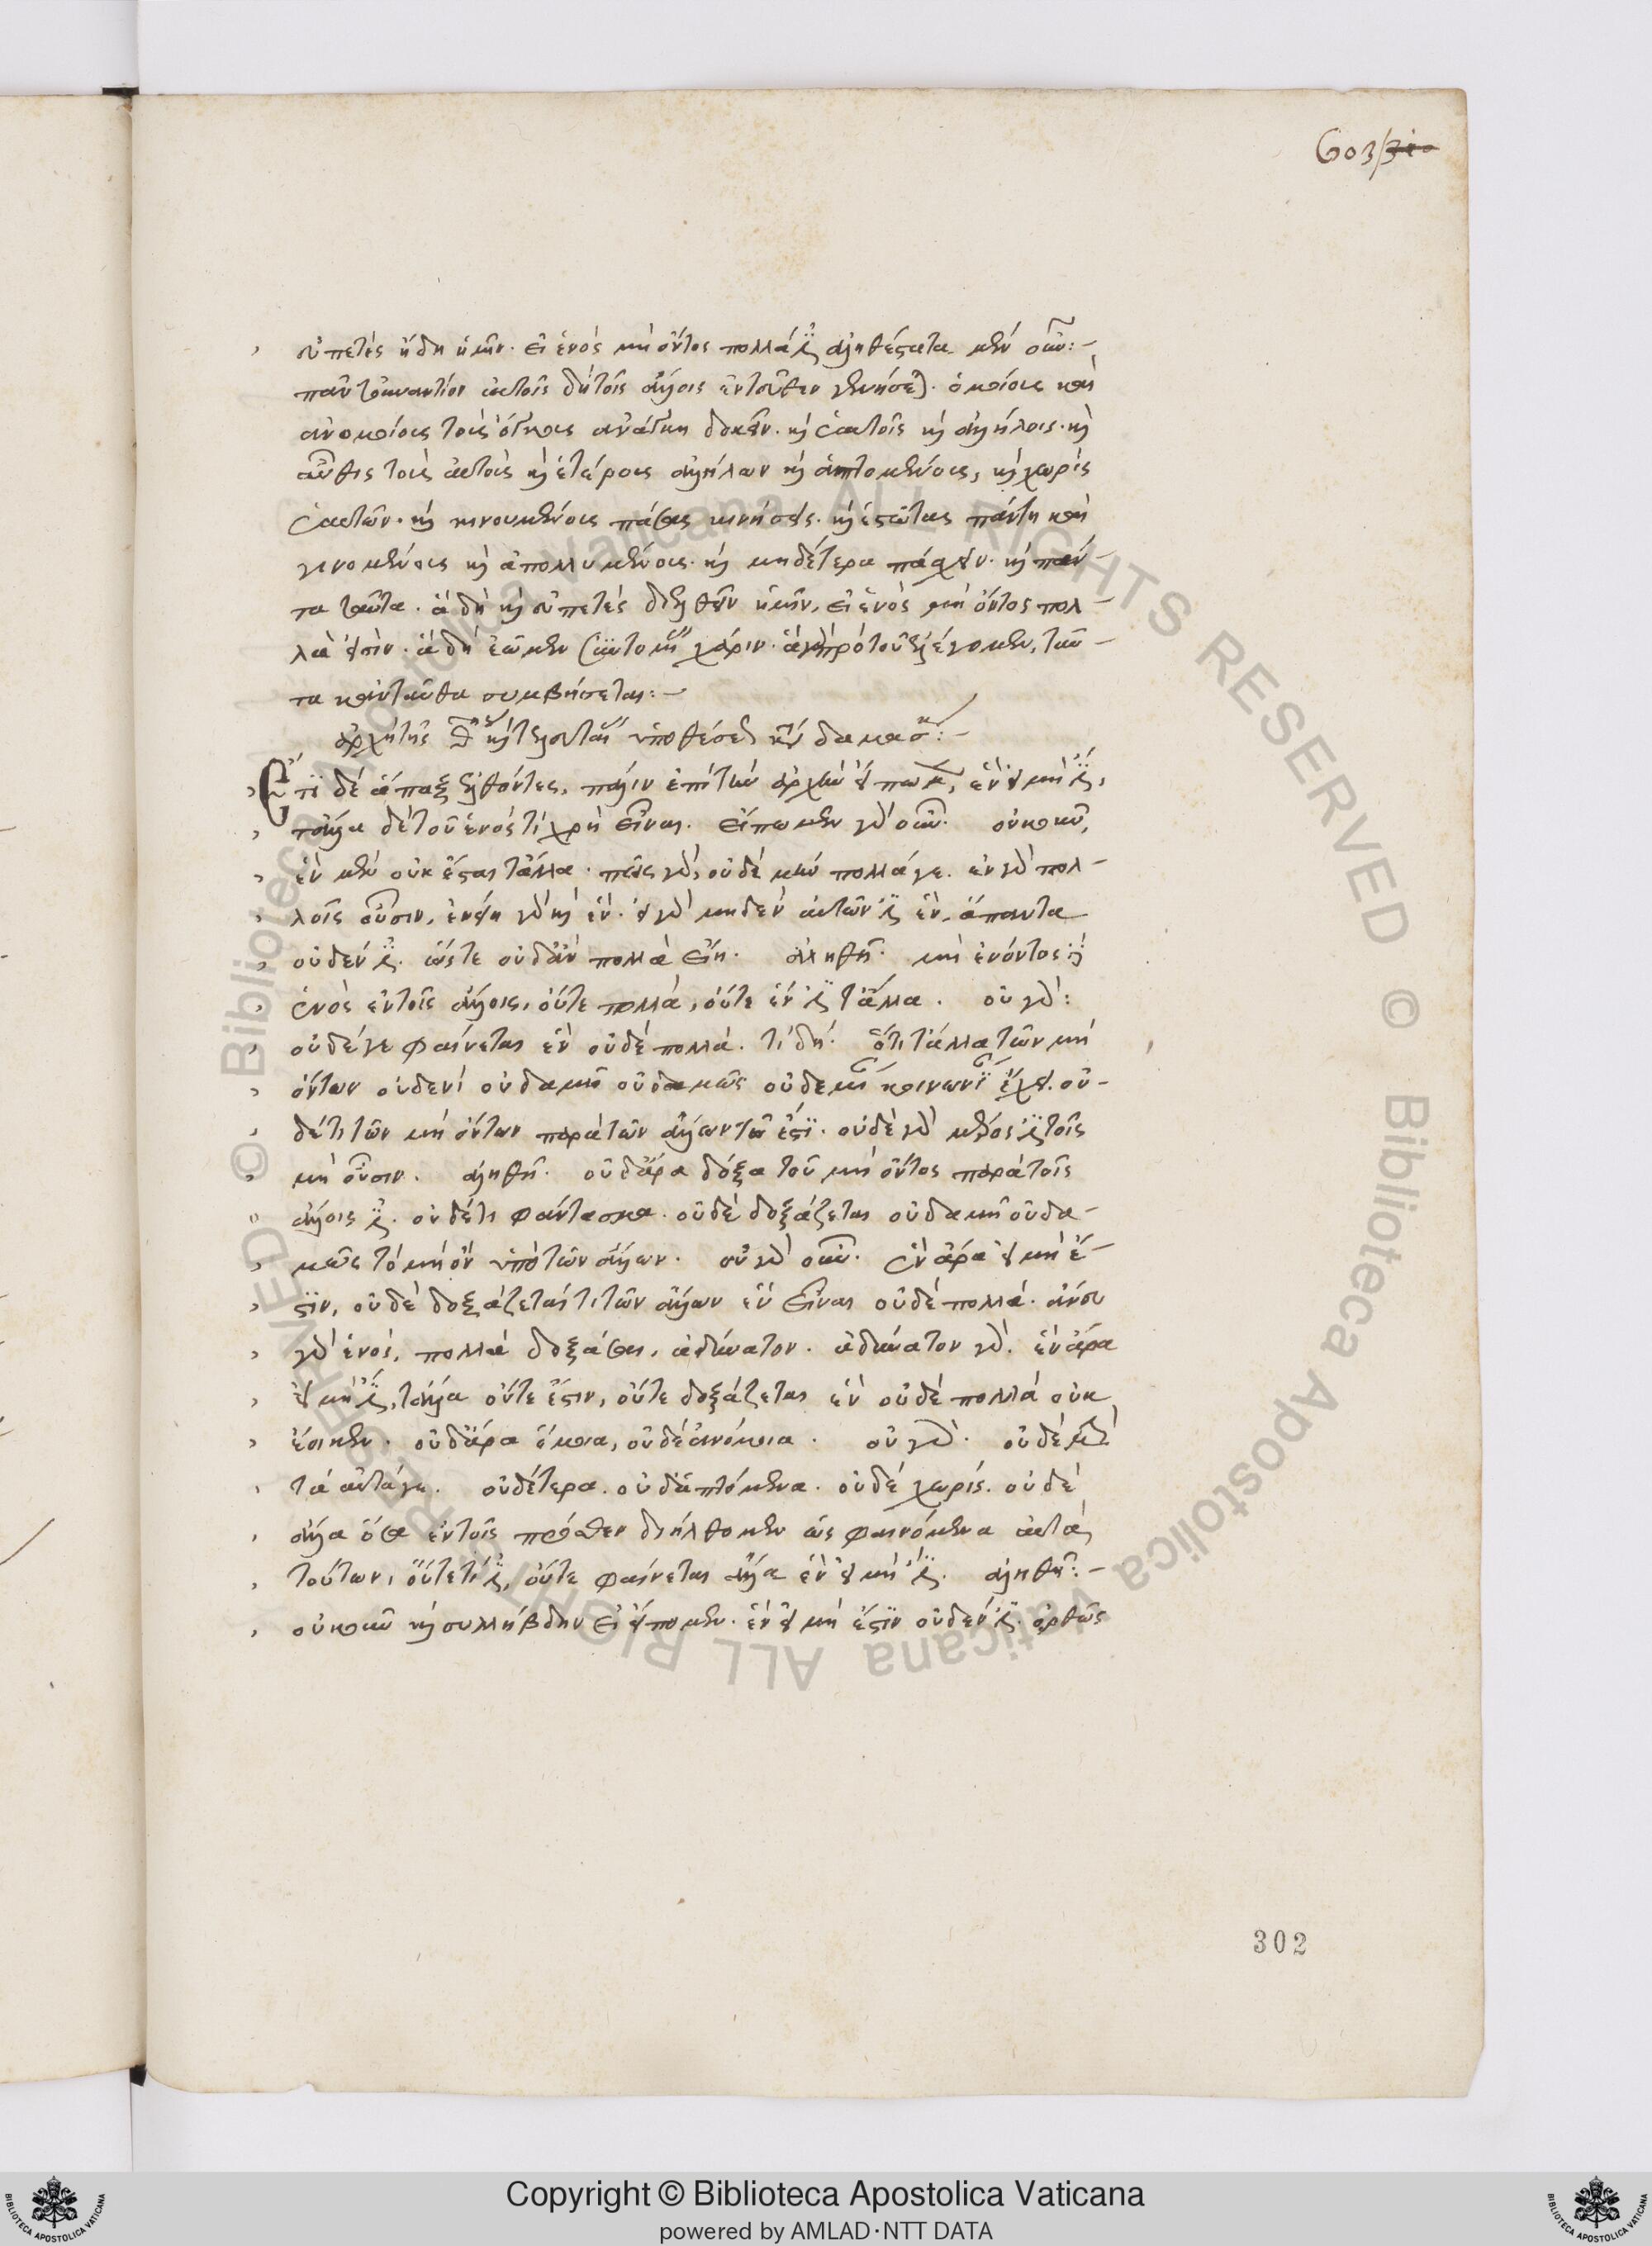 603/310
εὐπετὲς ἤδη ἡμῖν. εἰ ἑνὸς μὴ ὄντος πολλά ἐστιν. ἀληθέστατα μὲν οὖν:-
τοῖς ἄλλοις ὁμοίοις καὶ
ἀνομοίους τοὺς ὄγκους ἀνάγκη δοκεῖν. καὶ ἑαυτοῖς καὶ ἀλλήλοις. καὶ
αὖθις τοὺς αὐτοὺς καὶ ἑτέρους ἀλλήλων καὶ ἁπτομένους, καὶ χωρὶς
ἑαυτῶν. καὶ κινουμένους πάσας κινήσεις. καὶ ἑστῶτας πάντη καὶ
γινομένους καὶ ἀπολλυμένους. καὶ μηδέτερα πάσχειν. καὶ πάν-
τα ταῦτα. ἃ δὴ καὶ εὐπετὲς διελθεῖν ἡμῖν, εἰ ἑνὸς μὴ ὄντος πολ-
λὰ εἰσίν. ἃ δὴ ἐῶμεν χάριν. ἃ γὰρ πρὸ τοῦ ἐλέγομεν, ταῦ-
τα κἀνταῦθα συμβήσεται:-
ἀρχὴ τῆς θ καὶ τελευταίας ὑποθέσεως κατὰ δαμασκ:-
Ἔτι δὲ ἅπαξ ἐλθόντες, πάλιν ἐπὶ τὴν ἀρχὴν εἴπωμεν, ἓν εἰ μὴ ἔστι,
τἄλλα δὲ τοῦ ἑνὸς τί χρὴ εἶναι. εἴπωμεν γὰρ οὖν. οὐκοῦν,
ἓν μὲν οὐκ ἔσται τἄλλα. πῶς γάρ, οὐδὲ μὴν πολλά γε. ἐν γὰρ πολ-
λοῖς οὖσιν, ἐνείη γὰρ καὶ ἕν. εἰ γὰρ μηδὲν αὐτῶν ἐστιν ἕν, ἅπαντα
οὐδέν ἐστιν. ὥστε οὐδ᾽ ἂν πολλὰ εἴη. ἀληθῆ. μὴ ἐνόντος δὲ
ἑνὸς ἐν τοῖς ἄλλοις, οὔτε πολλά, οὔτε ἕν ἐστι τἄλλα. οὐ γάρ:
οὐδέ γε φαίνεται ἓν οὐδὲ πολλά. τί δή. ὅτι τἄλλα τῶν μὴ
ὄντων οὐδενὶ οὐδαμῇ οὐδαμῶς οὐδεμίαν κοινωνίαν ἔχει. οὐ-
δέ τι τῶν μὴ ὄντων παρὰ τῶν ἄλλων τῷ ἐστι. οὐδὲ γὰρ μέρος ἐστὶ τοῖς
μὴ οὖσιν. ἀληθῆ. οὐδ᾽ ἄρα δόξα τοῦ μὴ ὄντος παρὰ τοῖς
ἄλλοις ἐστίν. οὐδέ τι φάντασμα. οὐδὲ δοξάζεται οὐδαμῇ οὐδα-
μῶς τὸ μὴ ὂν ὑπὸ τῶν ἄλλων. οὐ γὰρ οὖν. ἓν ἄρα εἰ μὴ ἔ-
στιν, οὐδὲ δοξάζεταί τι τῶν ἄλλων ἓν εἶναι οὐδὲ πολλά. ἄνευ
γὰρ ἑνός, πολλὰ δοξάσαι, ἀδύνατον. ἀδύνατον γάρ. ἓν ἄρα
εἰ μὴ ἔστι, τἄλλα οὔτε ἔστιν, οὔτε δοξάζεται ἓν οὐδὲ πολλά οὐκ
ἔοικεν. οὐδ᾽ ἄρα ὅμοια, οὐδὲ ἀνόμοια. οὐ γάρ. οὐδὲ μὴν
τὰ αὐτά γε. οὐδ᾽ ἕτερα. οὐδ᾽ ἁπτόμενα. οὐδὲ χωρίς. οὐδὲ
ἄλλα ὅσα ἐν τοῖς πρόσθεν διήλθομεν ὡς φαινόμενα αὐτά,
τούτων, οὔτε τί ἐστιν, οὔτε φαίνεται ἄλλα ἓν εἰ μὴ ἔστιν. ἀληθῆ:-
οὐκοῦν καὶ συλλήβδην εἰ εἴποιμεν. ἓν εἰ μὴ ἔστιν οὐδέν ἐστιν. ὀρθῶς
302
Copyright © Biblioteca Apostolica Vaticana
powered by AMLAD·NTT DATA